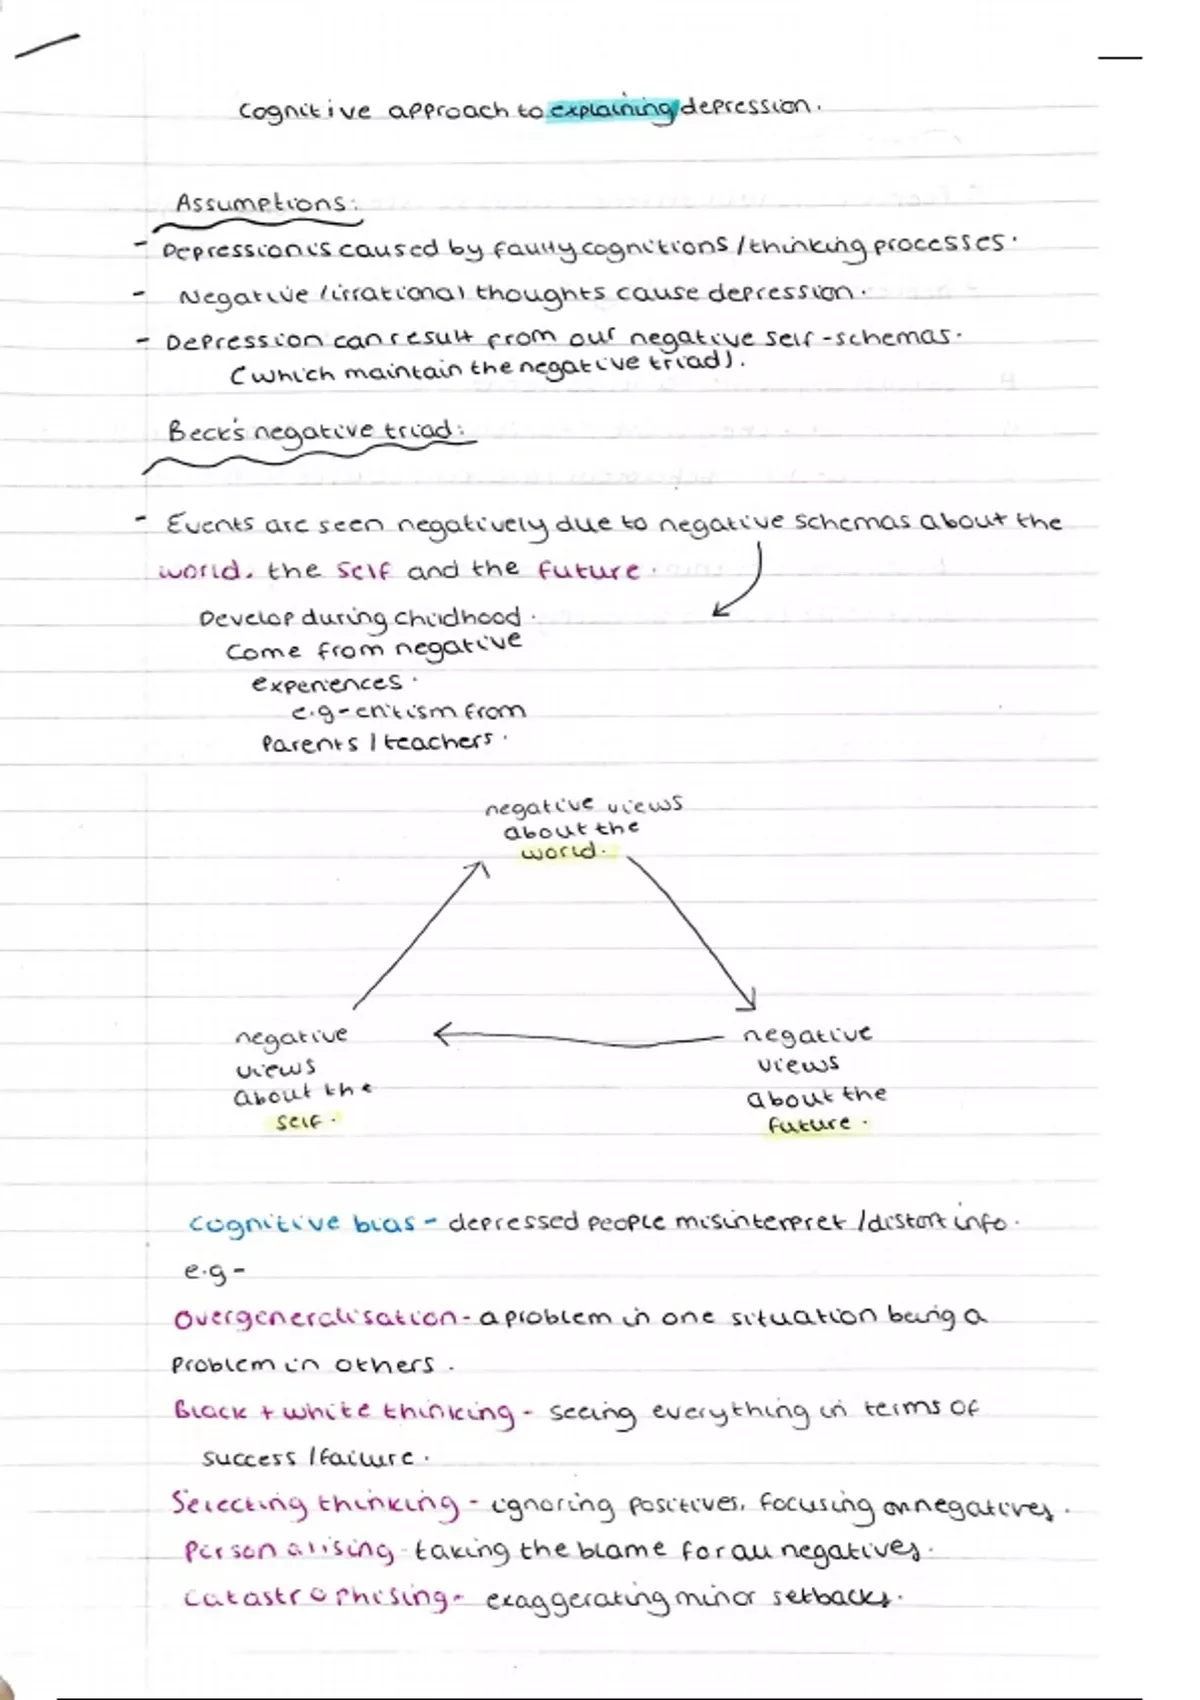 Cognitive approach to explaining depression.
Assumptions:
- Depression is caused by faulty cognitions / thinking processes.
- Negative / irrational thoughts cause depression.
- Depression can result from our negative self-schemas.
(which maintain the negative triad).
Beck's negative triad:
- Events are seen negatively due to negative schemas about the
world, the self and the future.
Develop during childhood.
Come from negative
experiences.
e.g - critism from
Parents / teachers.
negative views
about the
world.
negative
views
about the
self.
negative
views
about the
future.
Cognitive bias - depressed people misinterpret / distort info.
e.g -
Overgeneralisation - a problem in one situation being a
Problem in others.
Black + white thinking - seeing everything in terms of
success / failure.
Selecting thinking - ignoring positives, focusing on negatives.
Personalising - taking the blame for all negatives.
Catastrophising - exaggerating minor setbacks.